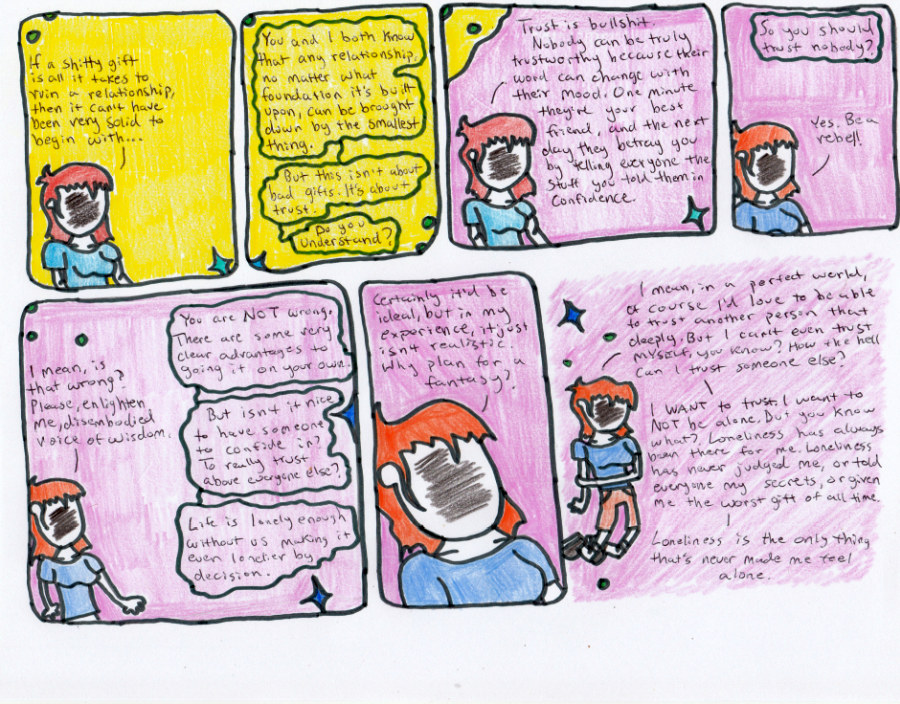 If a shitty gift
is all it takes to
ruin a relationship,
then it can't have
been very solid to
begin with...
You and I both know
that any relationship,
no matter what
foundation it's built
upon, can be brought
down by the smallest
thing.
But this isn't about
bad gifts. It's about
trust.
Do you
understand?
Trust is bullshit.
Nobody can be truly
trustworthy because their
word can change with
their mood. One minute
they're your best
friend, and the next
day they betray you
by telling everyone the
stuff you told them in
confidence.
So you should
trust nobody?
Yes. Be a
rebel!
I mean, is
that wrong?
Please, enlighten
me, disembodied
voice of wisdom.
You are NOT wrong.
There are some very
clear advantages to
going it on your own.
But isn't it nice
to have someone
to confide in?
To really trust
above everyone else?
Life is lonely enough
without us making it
even lonelier by
decision.
Certainly it'd be
ideal, but in my
experience, it just
isn't realistic.
Why plan for a
fantasy?
I mean, in a perfect world,
of course I'd love to be able
to trust another person that
deeply. But I can't even trust
myself, you know? How the hell
can I trust someone else?
I WANT to trust. I want to
NOT be alone. But you know
what? Loneliness has always
been there for me. Loneliness
has never judged me, or told
everyone my secrets, or given
me the worst gift of all time.
Loneliness is the only thing
that's never made me feel
alone.